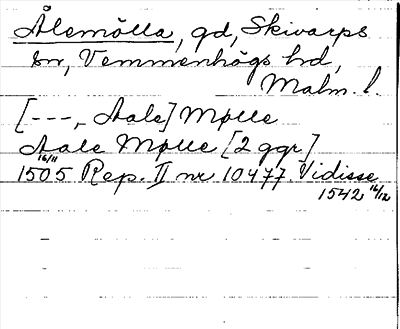 Ålemölla, gd, Skivarps
sn, Vemmenhögs hd,
Malm. l.
[---, Aale] Mølle
Aale Mølle [2 ggr]
1505 16/11 Rep. II nr 10477. Vidisse
1542 16/12